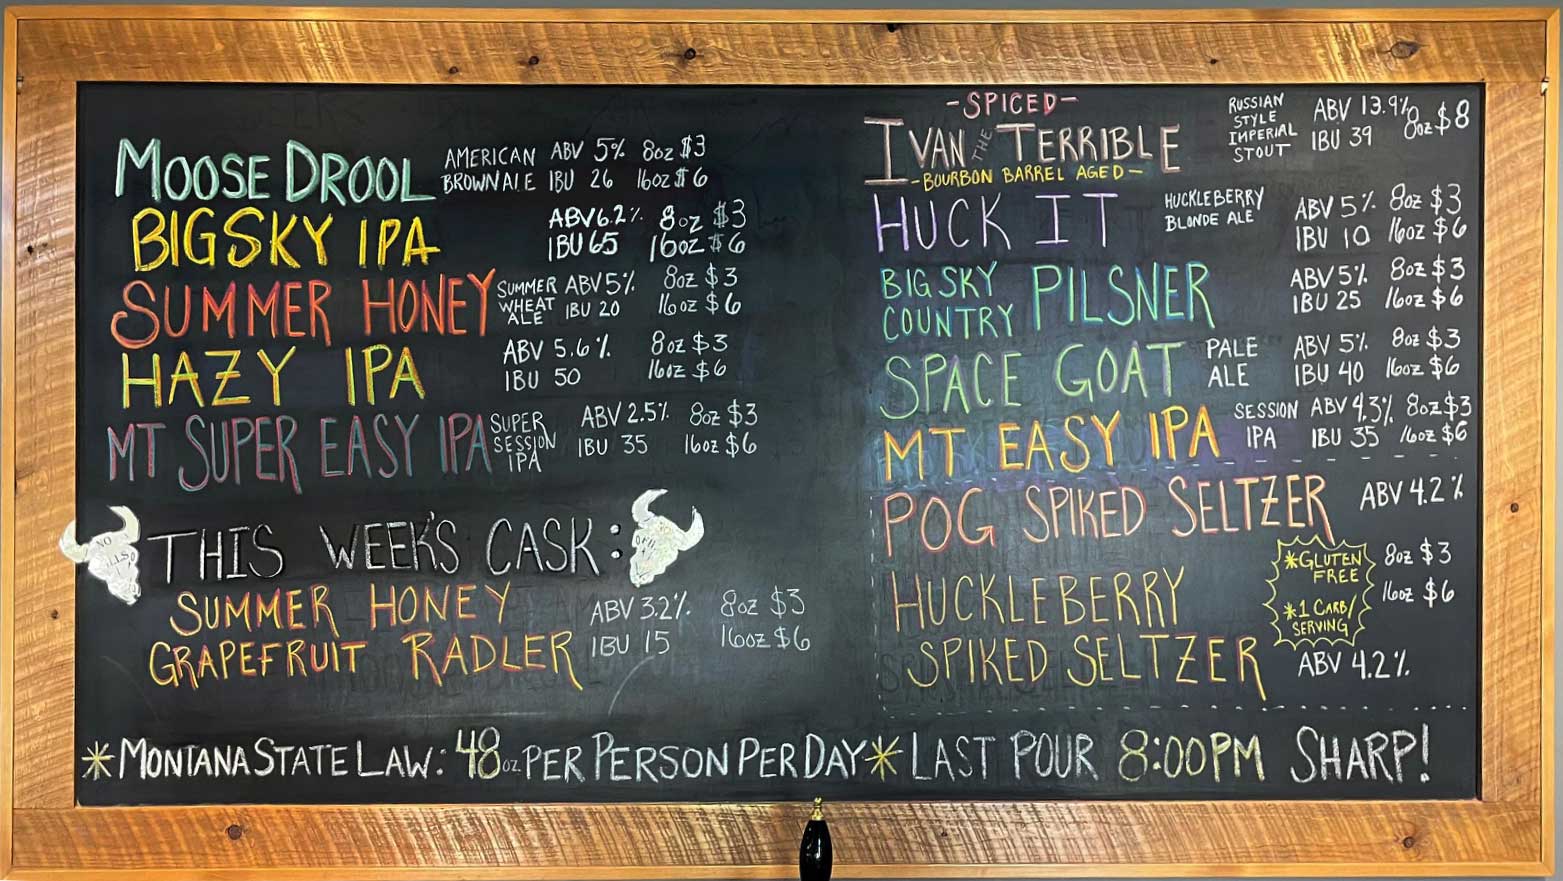 MOOSE DROOL AMERICAN ABV 5% 8oz $3
BROWN ALE IBU 26 16oz $6
BIG SKY IPA ABV 6.2% 8oz $3
IBU 65 16oz $6
SUMMER HONEY SUMMER WHEAT ALE ABV 5% 8oz $3
IBU 20 16oz $6
HAZY IPA ABV 5.6% 8oz $3
IBU 50 16oz $6
MT SUPER EASY IPA SUPER SESSION IPA ABV 2.5% 8oz $3
IBU 35 16oz $6
THIS WEEK'S CASK:
SUMMER HONEY ABV 3.2% 8oz $3
GRAPEFRUIT RADLER IBU 15 16oz $6
-SPICED-
IVAN THE TERRIBLE RUSSIAN STYLE IMPERIAL STOUT ABV 13.9% 8oz $8
IBU 39
-BOURBON BARREL AGED-
HUCK IT HUCKLEBERRY BLONDE ALE ABV 5% 8oz $3
IBU 10 16oz $6
BIG SKY COUNTRY PILSNER ABV 5% 8oz $3
IBU 25 16oz $6
SPACE GOAT PALE ALE ABV 5% 8oz $3
IBU 40 16oz $6
MT EASY IPA SESSION IPA ABV 4.3% 8oz $3
IBU 35 16oz $6
POG SPIKED SELTZER ABV 4.2%
*GLUTEN FREE 8oz $3
*1 CARB/SERVING 16oz $6
HUCKLEBERRY
SPIKED SELTZER ABV 4.2%
*MONTANA STATE LAW: 48oz PER PERSON PER DAY* LAST POUR 8:00PM SHARP!